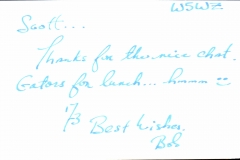 WSWZ
Scott...
Thanks for the nice chat.
Gators for lunch... hmmm
73
Best wishes.
Bob